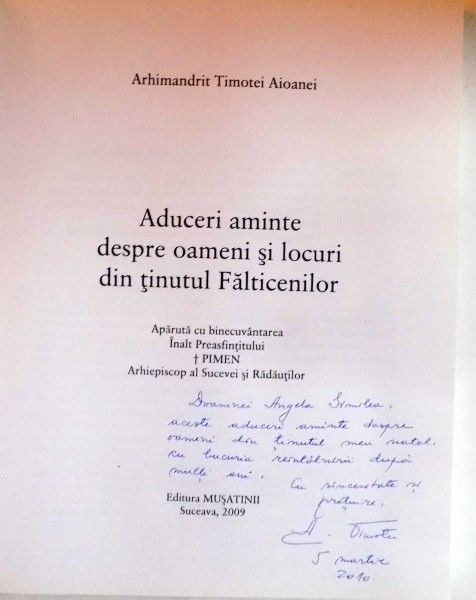 Arhimandrit Timotei Aioanei
Aduceri aminte
despre oameni şi locuri
din ţinutul Fălticenilor
Apărută cu binecuvântarea
Înalt Preasfinţitului
† PIMEN
Arhiepiscop al Sucevei şi Rădăuţilor
Doamnei Angela
aceste aduceri aminte despre
oameni din ţinutul meu natal.
cu bucuria reîntâlnirii după
mulţi ani.
Cu sinceritate şi
preţuire.
A. Timotei
5 martie
2010.
Editura MUŞATINII
Suceava, 2009